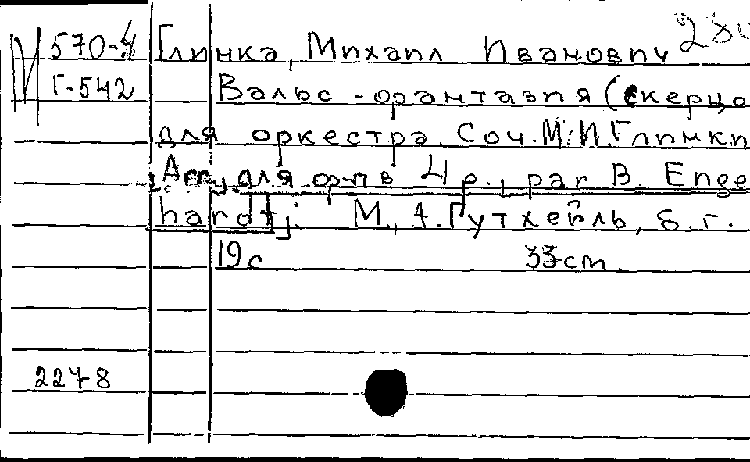 570-4 Глинка, Михаил Иванович 280
Г-542 Вальс-фантазия (скерцо
для оркестра. Соч. М. И. Глинки
Arr. для ф-п в 4 р., par B. Enge
hardt). М., А. Гутхейль, б. г.
19 с 33 cm
2278